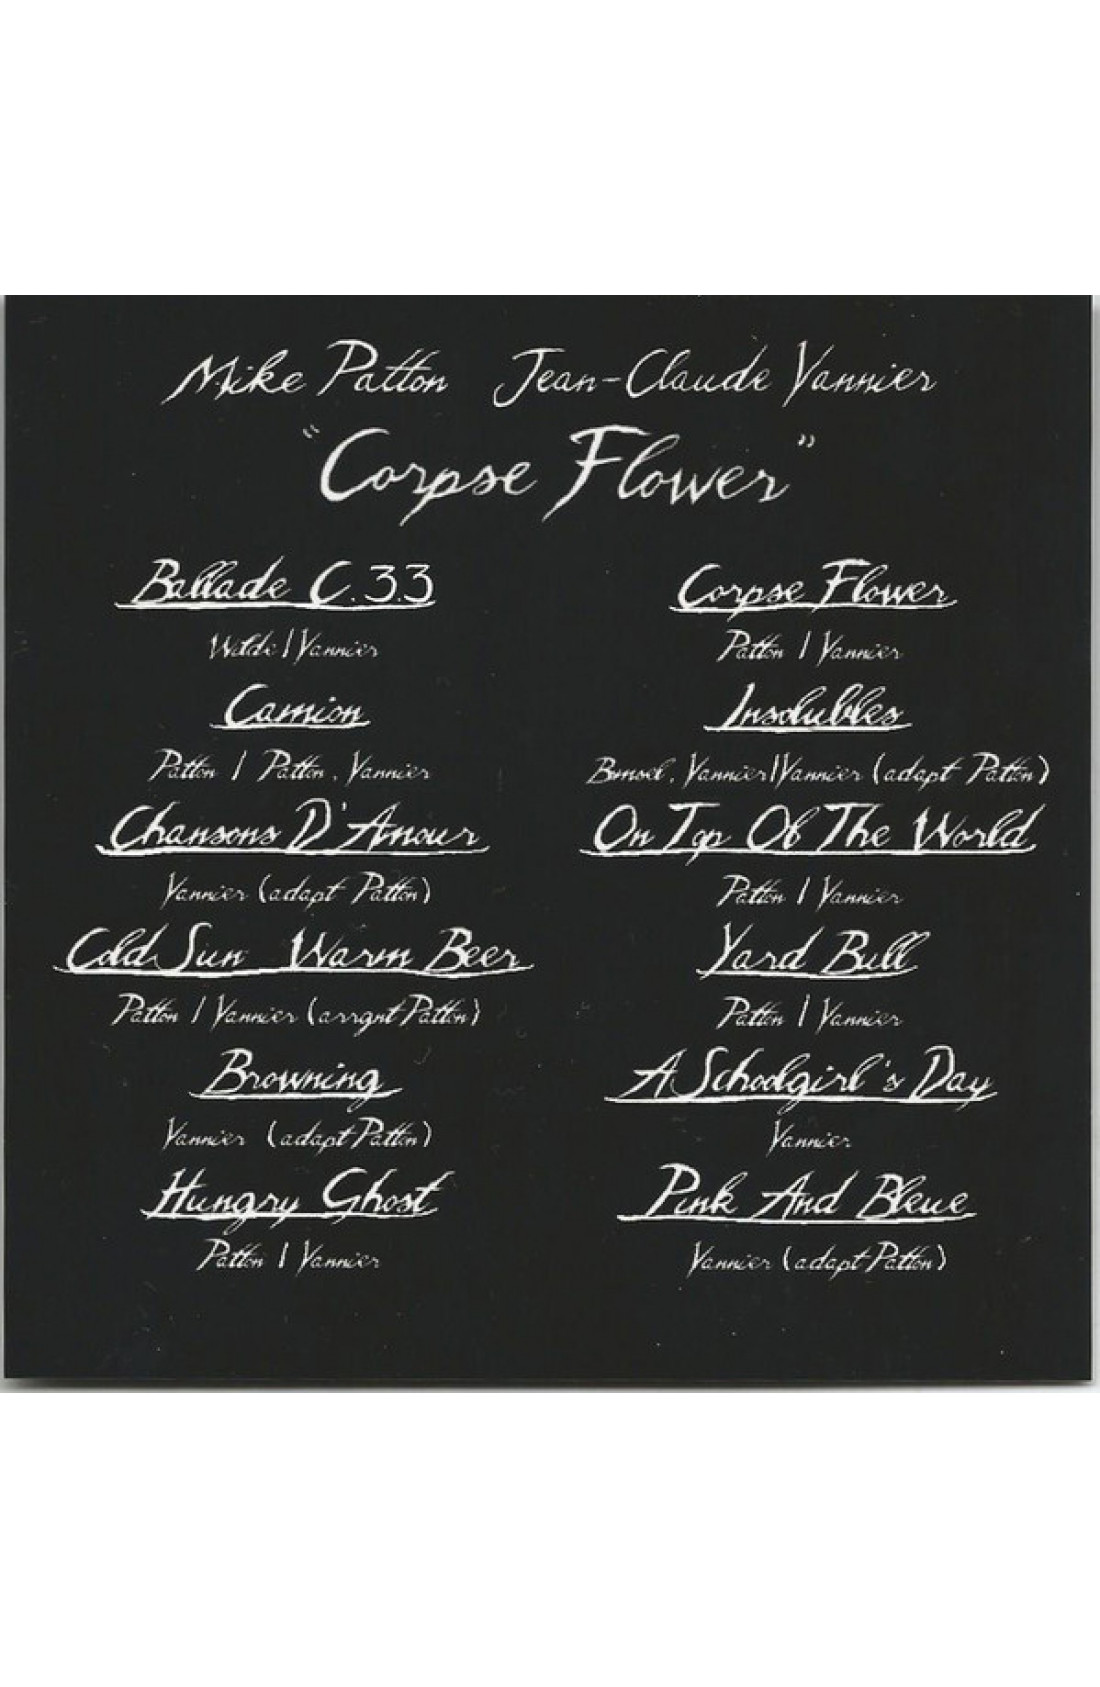 Mike Patton Jean-Claude Vannier
"Corpse Flower"
Ballade C.3.3
Wilde / Vannier
Camion
Patton / Patton, Vannier
Chansons D'Amour
Vannier (adapt Patton)
Cold Sun Warm Beer
Patton / Vannier (arrgnt Patton)
Browning
Vannier (adapt Patton)
Hungry Ghost
Patton / Vannier
Corpse Flower
Patton / Vannier
Insolubles
Vannier / Vannier (adapt Patton)
On Top Of The World
Patton / Vannier
Yard Bull
Patton / Vannier
A Schoolgirl's Day
Vannier
Pink And Bleue
Vannier (adapt Patton)